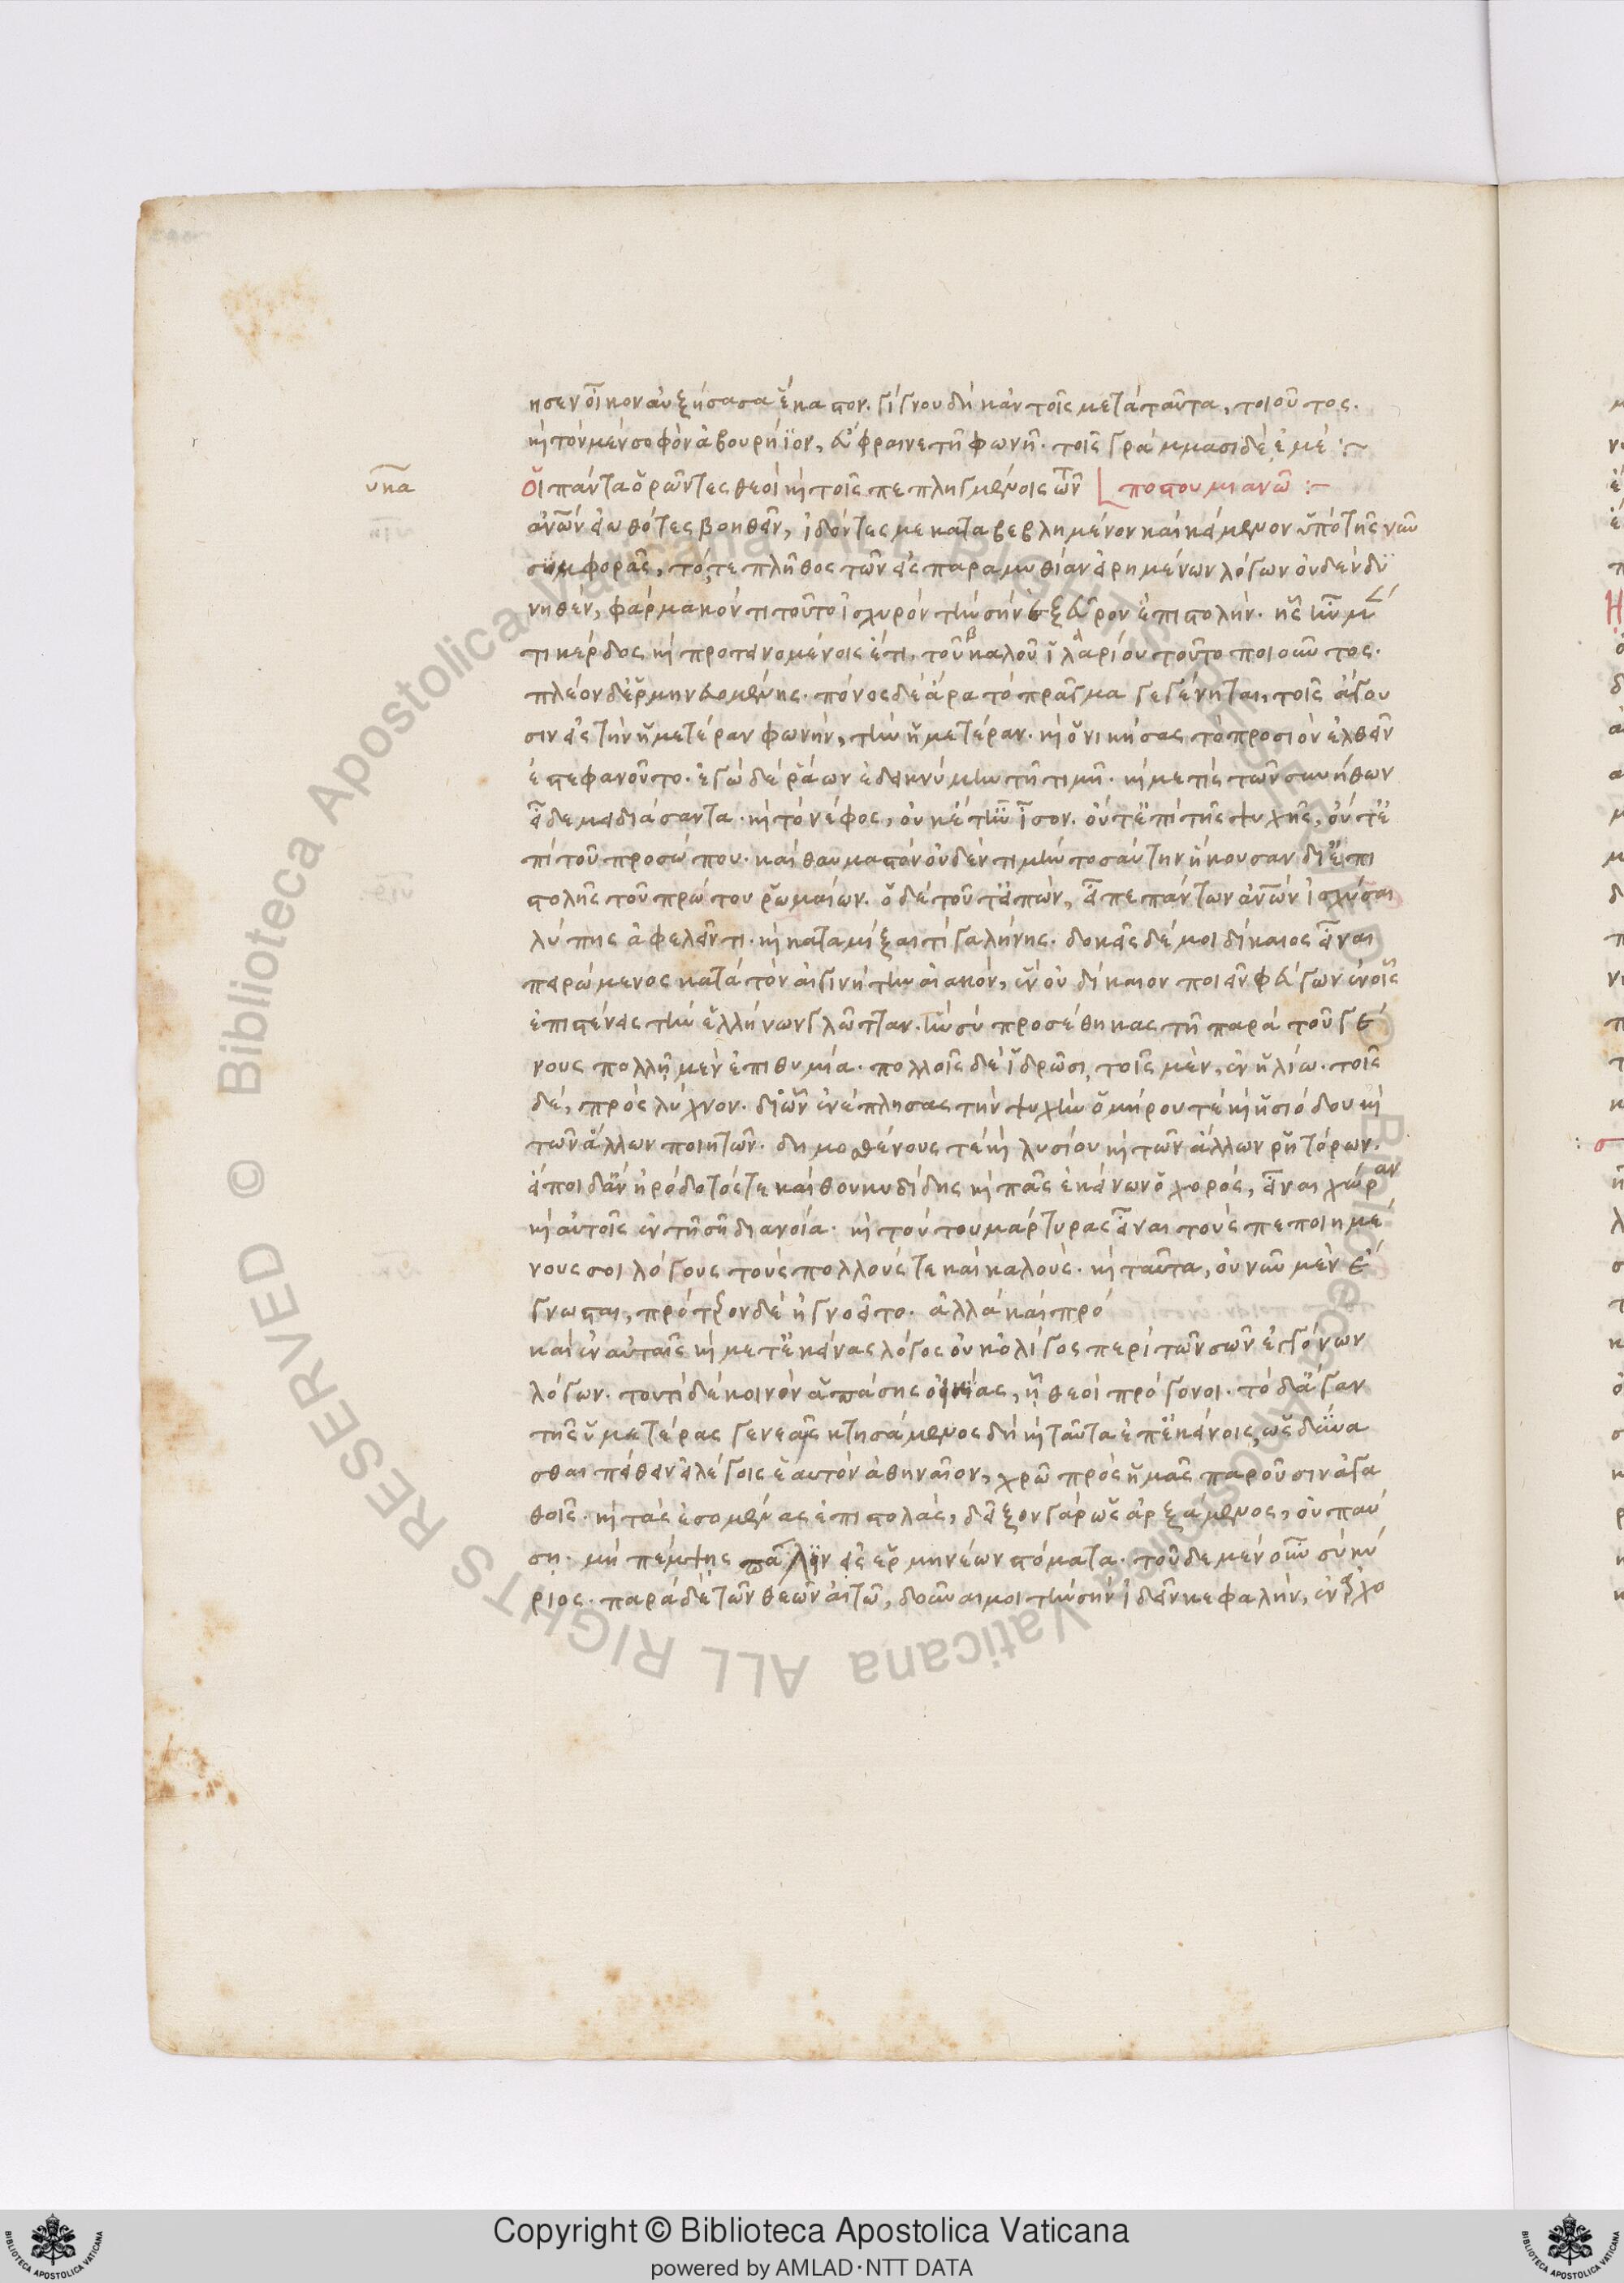 ησεν οἶκον αὐξήσασα ἕκαστον. γίγνου δὴ κἀν τοῖς μετὰ ταῦτα, τοιοῦτος.
καὶ τὸν μὲν σοφὸν ἀβουρήϊον, εὔφραινε τῇ φωνῇ. τοῖς γράμμασι δὲ, ἐμέ :~
υκα
Οἱ πάντα ὁρῶντες θεοὶ καὶ τοῖς πεπληγμένοις τῶν ποστουμιανῶ :~
ἀνων εἰωθότες βοηθεῖν, ἰδόντες με καταβεβλημένον καὶ κείμενον ὑπὸ τῆς νῦν
συμφορᾶς, τό, τε πλῆθος τῶν εἰς παραμυθίαν εἰρημένων λόγων οὐδὲν δυ
νηθὲν, φάρμακόν τι τοῦτο ἰσχυρὸν τὴν σὴν ἐξεῦρον ἐπιστολήν. ἧς ἦν μὲν
τι κέρδος καὶ προτεινομένοις ἔτι, τοῦ καλοῦ ἱλαρίου τοῦτο ποιοῦντος.
πλέον δὲ ἑρμηνευομένης. πόνος δὲ ἄρα τὸ πρᾶγμα γεγένηται, τοῖς ἄγου
σιν εἰς τὴν ἡμετέραν φωνὴν, τὴν ὑμετέραν. καὶ ὁ νικήσας τὸ προσιὸν ἐλθεῖν
ἐστεφανοῦτο. ἐγὼ δὲ ῥάων ἐδεικνύμην τῇ τιμῇ. καί με τὶς τῶν συνήθων
εἶδε μειδιάσαντα. καὶ τὸ νέφος, οὐκέτ' ἦν ἴσον. οὔτ' ἐπὶ τῆς ψυχῆς, οὔτ' ἐ
πὶ τοῦ προσώπου. καὶ θαυμαστὸν οὐδὲν τιμὴν τοσαύτην ἥκουσαν δι' ἐπι
στολῆς τοῦ πρώτου ῥωμαίων. ὁ δὲ τοῦτ' εἰπὼν, εἶπε πάντων ἀνων ἰσχῦσαι
λύπης ἀφελεῖν τι. καὶ καταμίξαι τί γαλήνης. δοκεῖς δέ μοι δίκαιος εἶναι
πειρώμενος κατὰ τὸν αἰγινήτην αἰακόν, ἓν οὐ δίκαιον ποιεῖν φεύγων ἐν οἷς
ἐπιστέλλεις τὴν ἑλλήνων γλῶτταν. ἣν σὺ προσέθηκας τῇ παρὰ τοῦ γέ
νους πολλῇ μὲν ἐπιθυμία. πολλοῖς δὲ ἱδρῶσι, τοῖς μὲν, ἐν ἡλίω. τοῖς
δέ, πρὸς λύχνον. δι' ὧν ἐνέπλησας τὴν ψυχὴν ὁμήρου τὲ καὶ ἡσιόδου καὶ
τῶν ἄλλων ποιητῶν. δημοσθένους τὲ καὶ λυσίου καὶ τῶν ἄλλων ῥητόρων.
εἴποι δ' ἂν ἡρόδοτός τε καὶ θουκυδίδης καὶ πᾶς ἐκείνων ὁ χορός, εἶναι χώραν
καὶ αὐτοῖς ἐν τῇ σῇ διανοία. καὶ τούτου μάρτυρας εἶναι τοὺς πεποιημέ
νους σοι λόγους τοὺς πολλούς τε καὶ καλούς. καὶ ταῦτα, οὐ νῦν μὲν ἔ
γνωσται, πρότερον δὲ ἠγνοεῖτο. ἀλλὰ καὶ πρό
καὶ ἐν αὐταῖς καὶ μετ' ἐκείνας λόγος οὐκ ὀλίγος περὶ τῶν σῶν ἐκγόνων
λόγων. τουτὶ δὲ κοινὸν ἁπάσης οἰκίας, ᾗ θεοὶ πρόγονοι. τὸ δ' ἄγαν
τῆς ὑμετέρας γενεᾶς κτησάμενος δὴ καὶ ταῦτα ἐπ' ἐκείνοις, ὡς δύνα
σθαι πείθειν εἰ λέγοις ἑαυτὸν ἀθηναῖον, χρῶ πρὸς ἡμᾶς παροῦσιν ἀγα
θοῖς. καὶ τὰς ἐσομένας ἐπιστολάς, δεῖξον γὰρ ὡς ἀρξάμενος, οὐ παύ
ση. μὴ πέμψης πάλιν εἰς ἑρμηνέων στόματα. τοῦδε μὲν οὖν σὺ κύ
ριος. παρὰ δὲ τῶν θεῶν αἰτῶ, δοῦναι μοι τὴν σὴν ἰδεῖν κεφαλὴν, ἐν ἀρχο